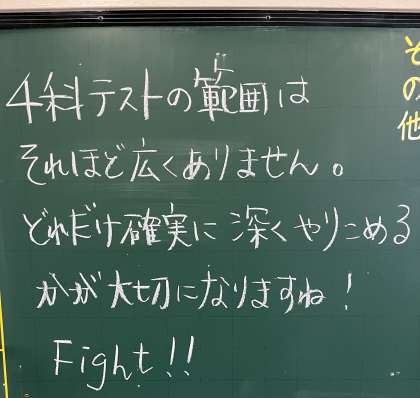 4科テストの範囲は
それほど広くありません。
どれだけ確実に深くやりこめる
かが大切になりますね!
Fight!!
その他